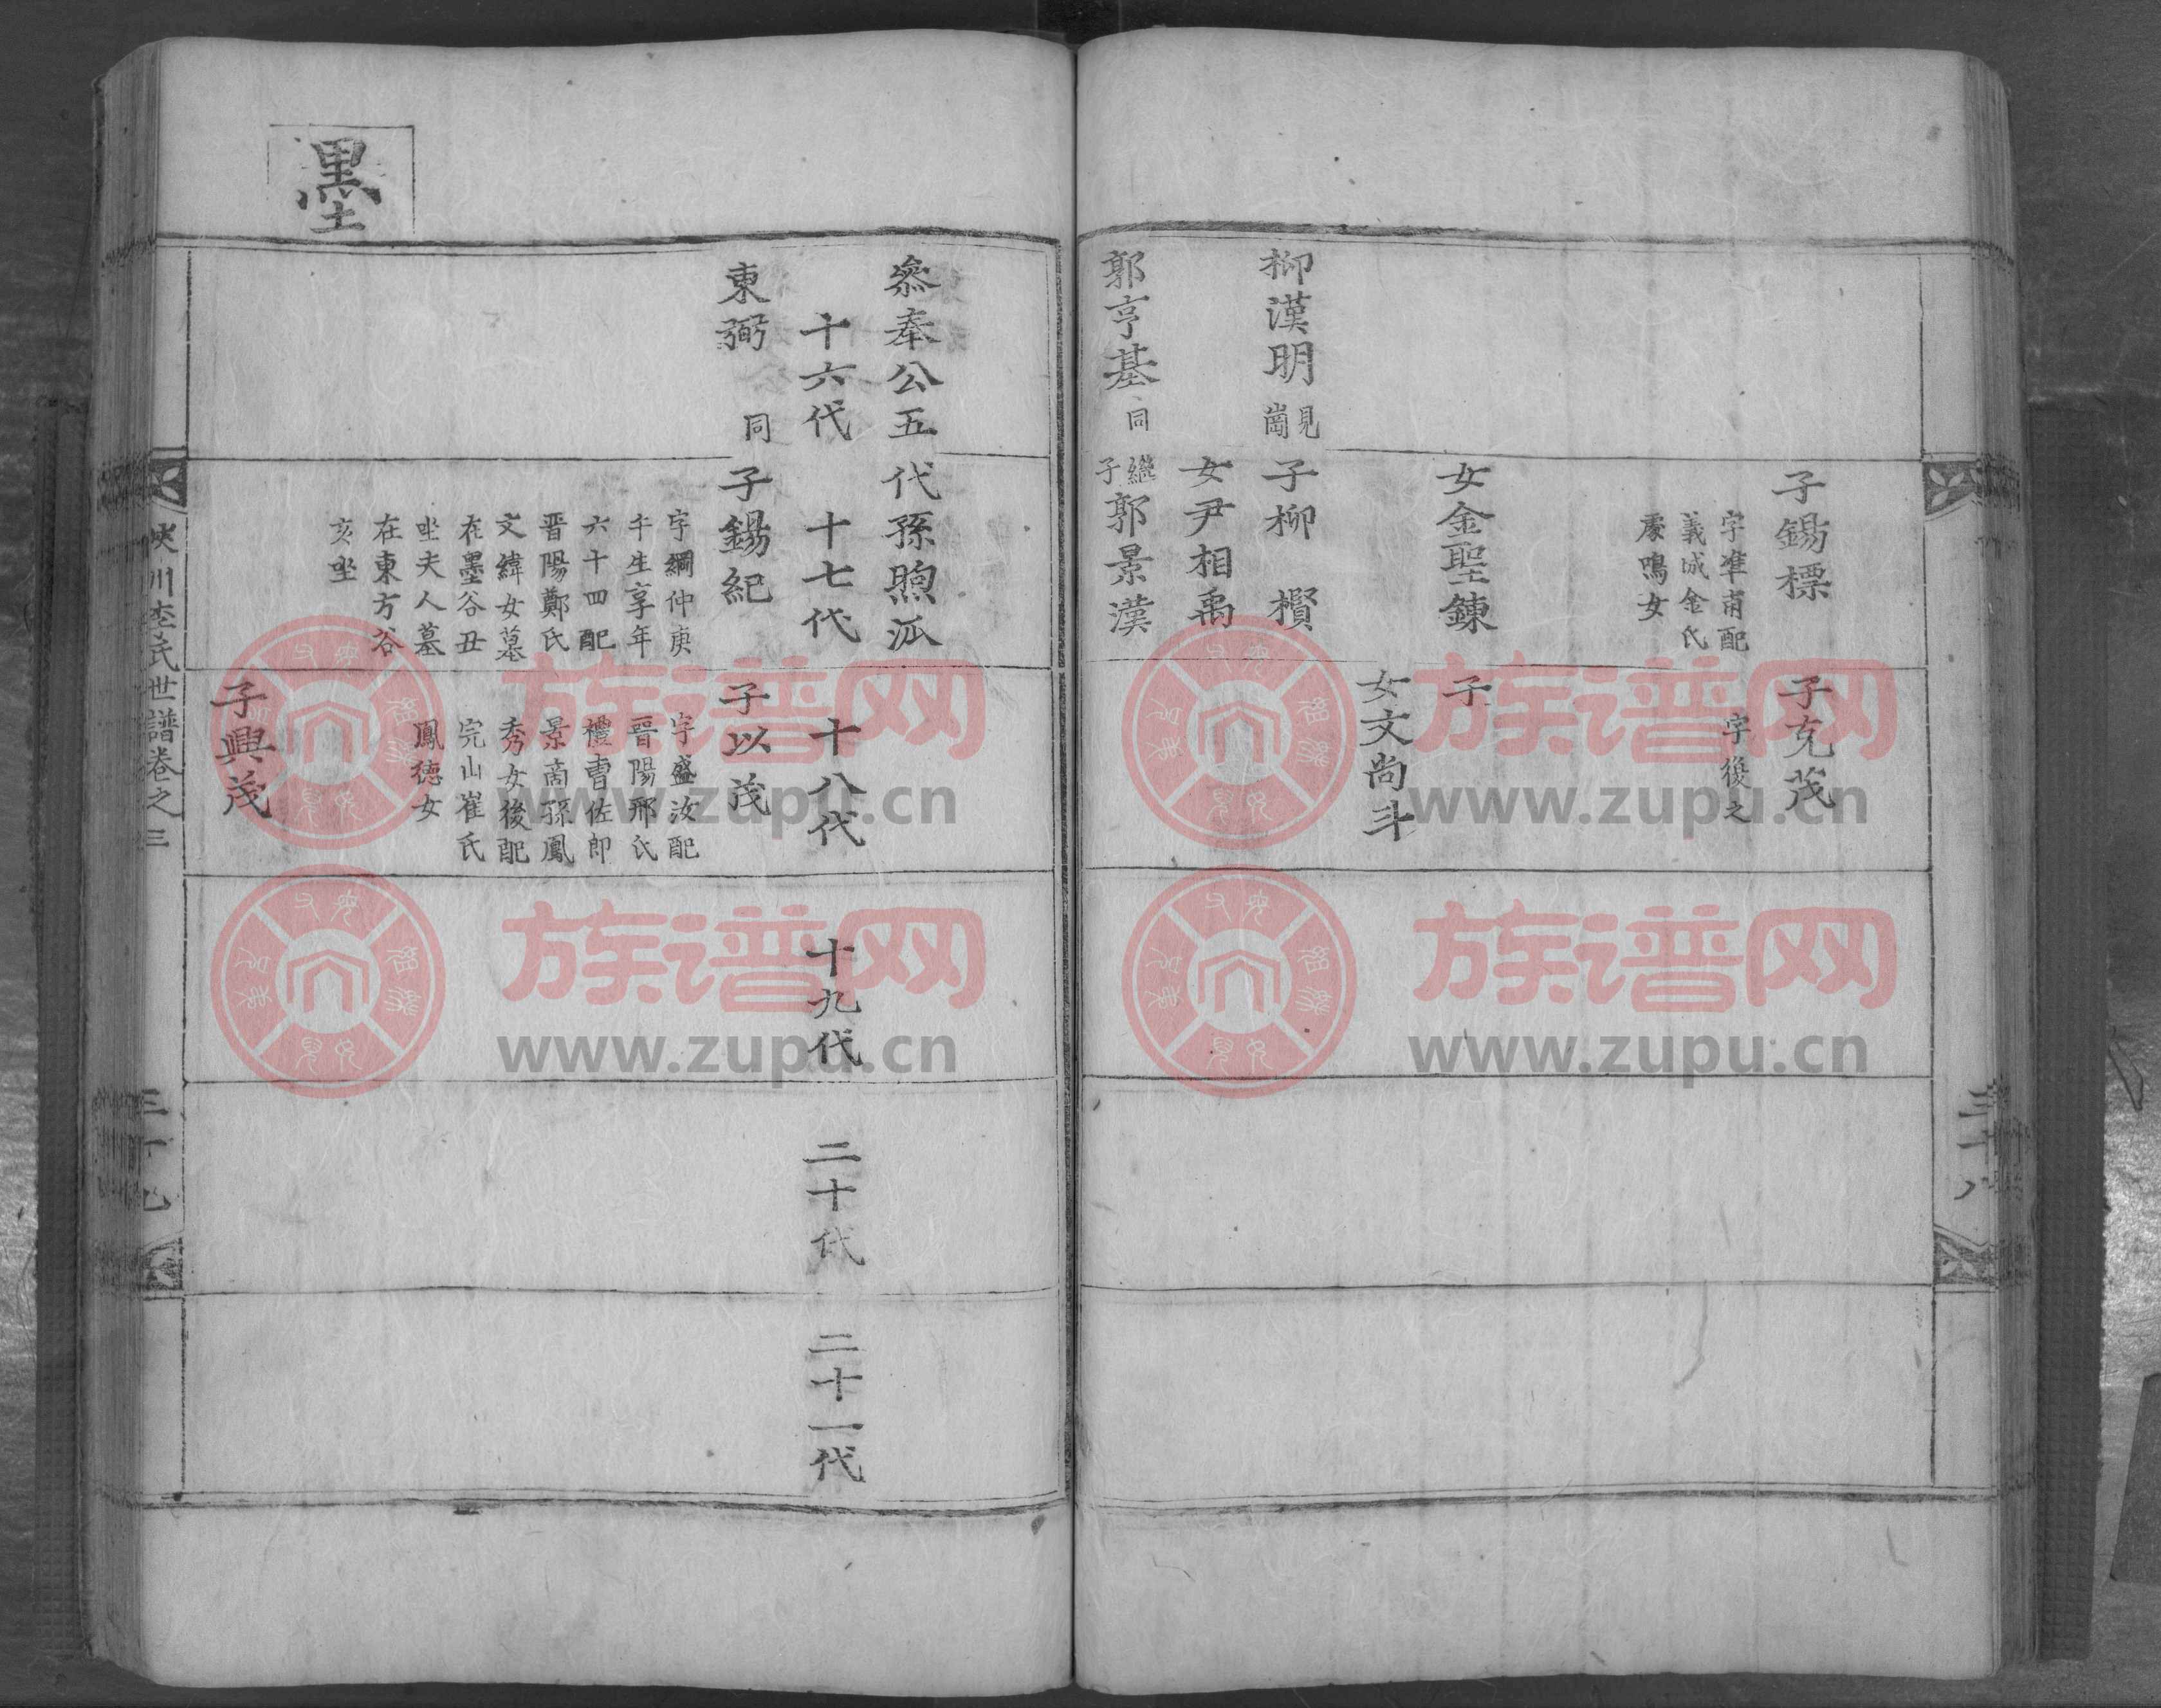 子錫標
字準甫配
義成金氏
慶鳴女
子克茂
字後之
女金聖鍊
子
女文尚斗
柳漢明
見
崗
子柳櫕
女尹相禹
郭亨基
同
繼
子
郭景漢
三十八
參奉公五代孫煦派
十六代
十七代
十八代
十九代
二十代
二十一代
東弼
同
子錫紀
字綱仲庚
午生享年
六十四配
晋陽鄭氏
文緯女墓
在墨谷丑
坐夫人墓
在東方谷
亥坐
子以茂
字盛汝配
晋陽邢氏
禮曹佐郎
景商孫鳳
秀女後配
完山崔氏
鳳德女
子興茂
墨
陜川李氏世譜卷之三
三十九
族谱网
www.zupu.cn
族谱网
www.zupu.cn
族谱网
www.zupu.cn
族谱网
www.zupu.cn